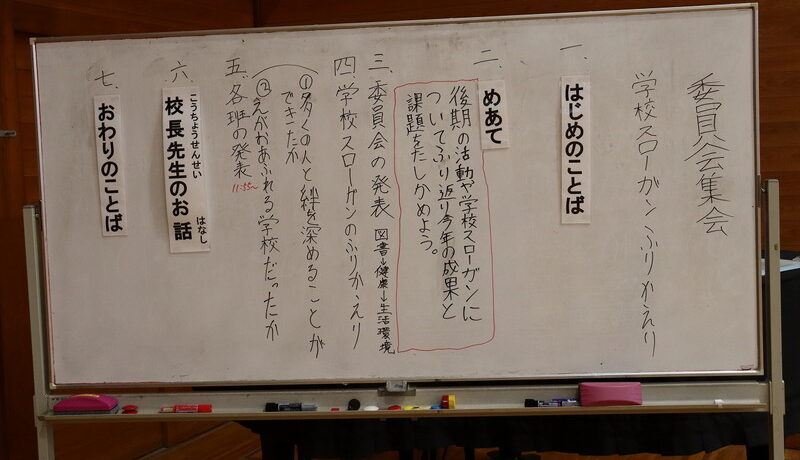 委員会集会
学校スローガンふりかえり
一、はじめのことば
二、めあて
後期の活動や学校スローガンに
ついてふり返り今年の成果と
課題をたしかめよう。
三、委員会の発表 図書→健康→生活環境
四、学校スローガンのふりかえり
①多くの人と絆を深めることが
できたか
②えがおあふれる学校だったか
五、各班の発表
11:55~
六、校長先生のお話
こうちょうせんせい はなし
七、おわりのことば